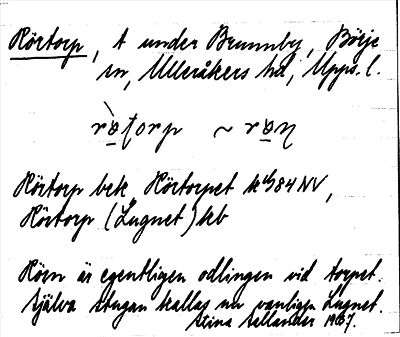 Rörtorp, t. under Brunnby, Börje
sn, Ulleråkers hd, Upps. l.
Rörtorp bek, Rörtorpet
Rörtorp (Lugnet) hkb
Rörn är egentligen odlingen vid torpet.
Själva stugan kallas nu vanligen Lugnet.
Stina Sellander